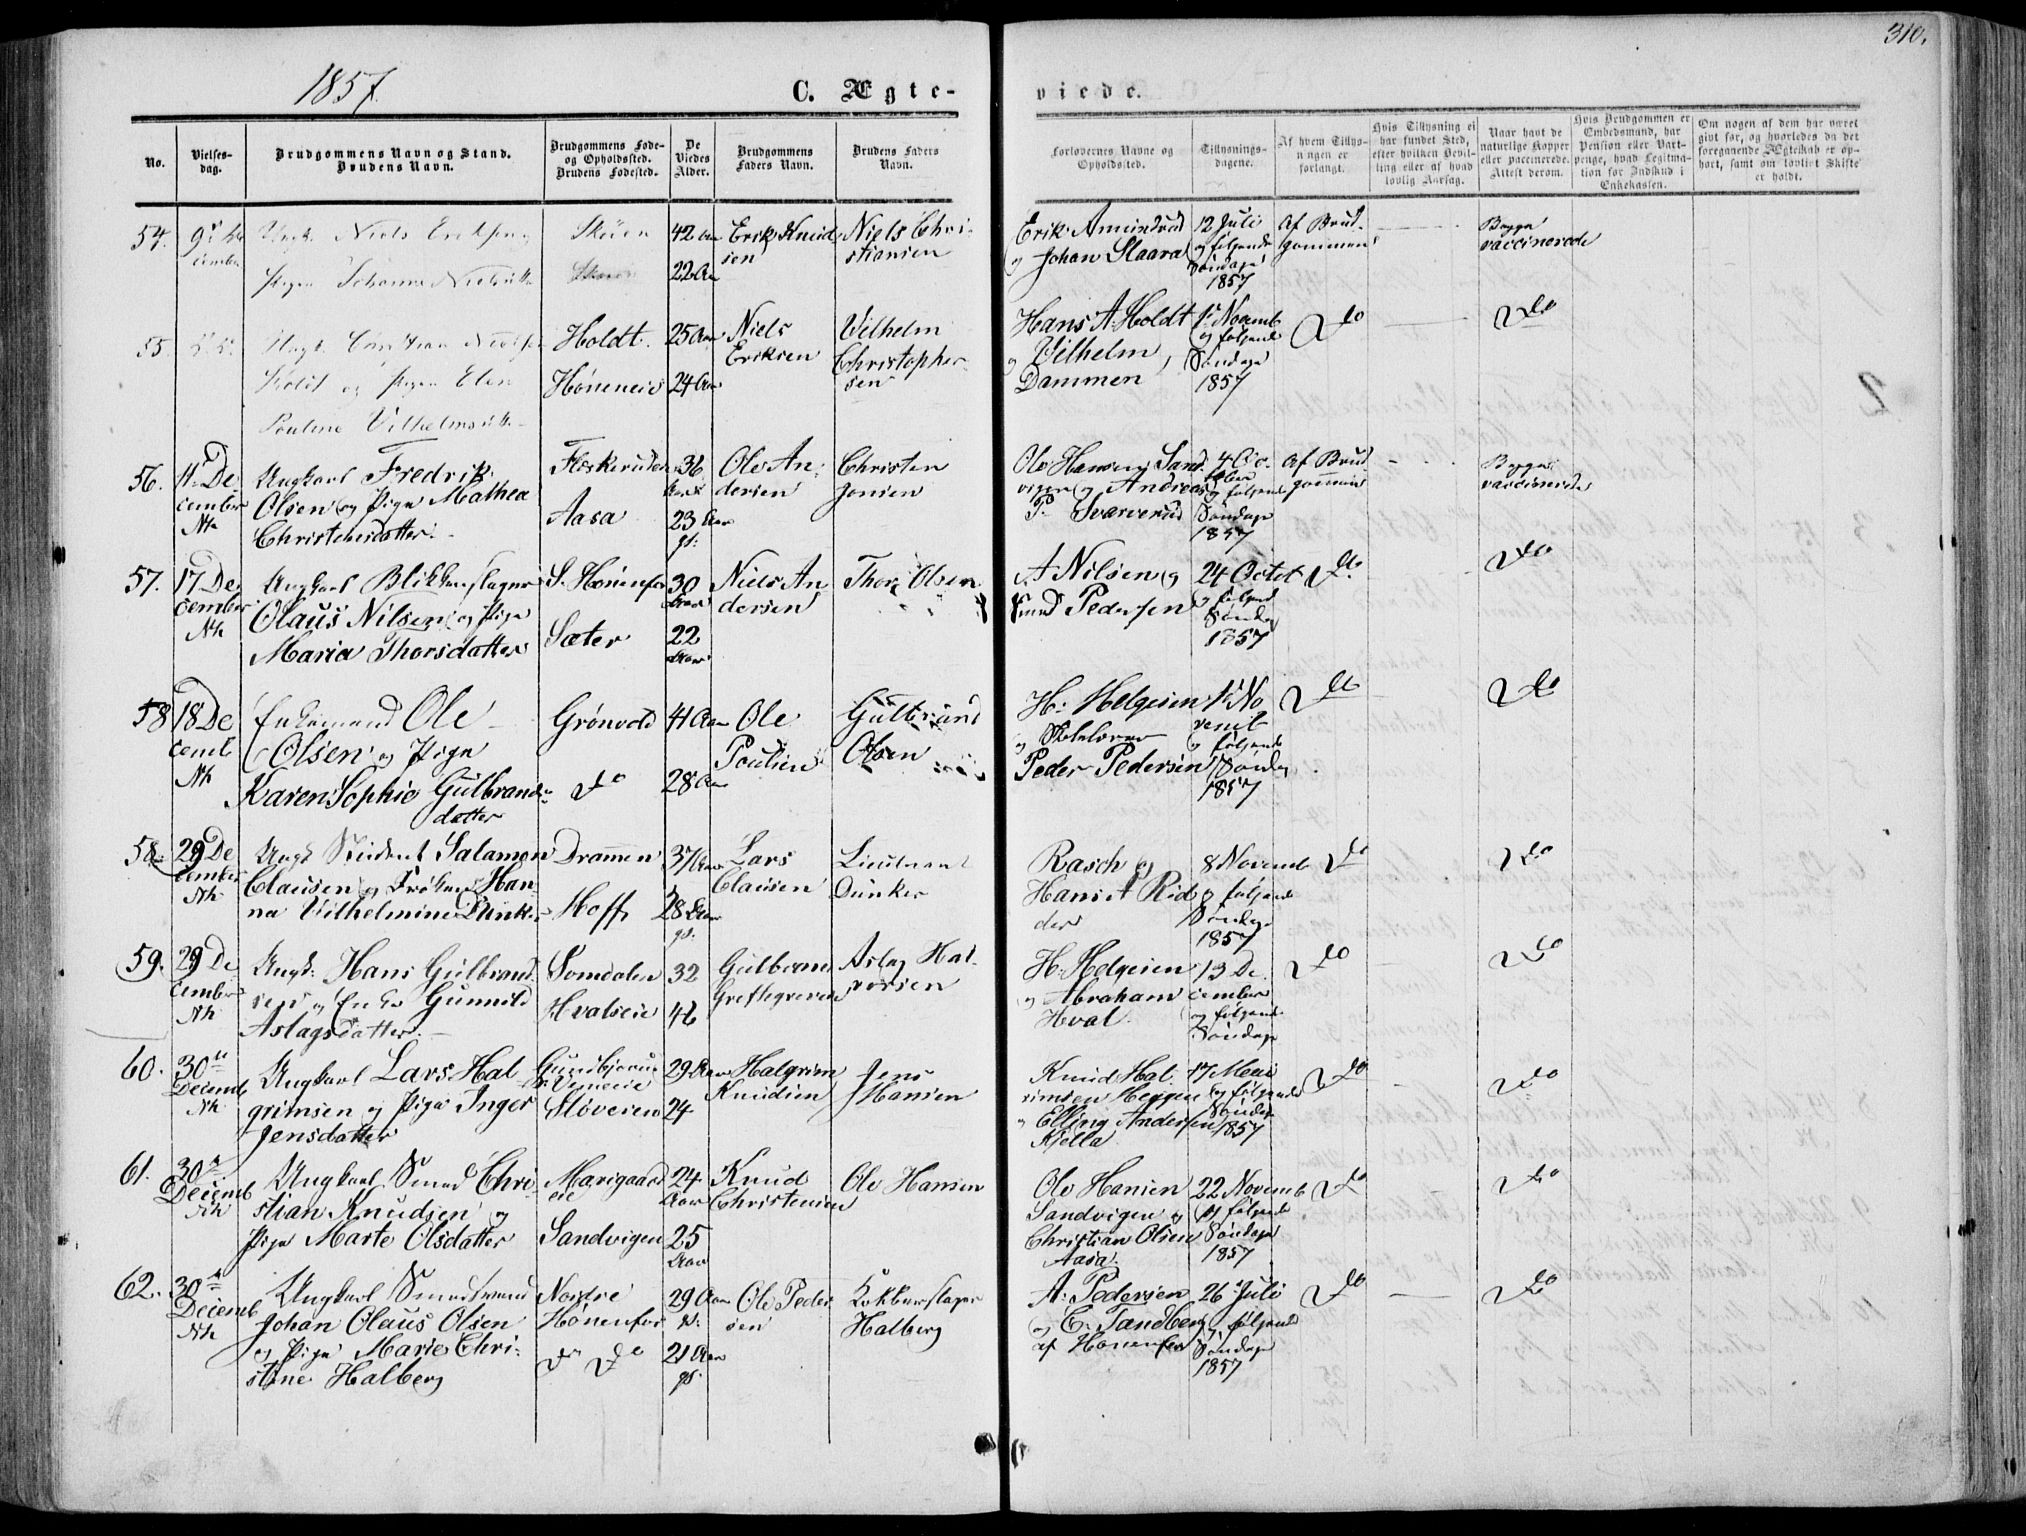 310.
1857.
C. Ægte-
viede.
No.
Vielses-
dag.
Brudgommens Navn og Stand.
Brudens Navn.
Brudgommens Føde-
og Opholdssted.
Brudens Fødested.
De
Viedes
Alder.
Brudgommens
Faders Navn.
Brudens Faders
Navn.
Forlovernes Navne og
Opholdssted.
Tillysnings-
dagene.
Af hvem Tillys-
ningen er
forlangt.
Hvis Tillysning ei
har fundet Sted,
efter hvilken Bevil-
ling eller af hvad
lovlig Aarsag.
Naar havt de
naturlige Kopper
eller vaccinerede.
Attest derom.
Hvis Brudgommen er
Embedsmand, har
Pension eller Vart-
penge, hvad Legitima-
tion for Indskud i
Enkekassen.
Om nogen af dem har været
gift før, og hvorledes da det
foregaaende Ægteskab er op-
hørt, samt om lovligt Skifte
er holdt.
54.
Niels Eriksen
Pigen Johanne Nielsdtr
Skøien
42 Aar
22 Aar
Erik Knud
sen
Niels Chri-
stiansen
Erik Amundrud
og Johan Slaaraa
12 Juli
og følgende
Søndage
1857
Af Brud-
gommen
Begge
vaccinerede
55.
Holdt og Pigen Elen
Pauline Vilhelmsdtr
Holdt.
Høneneie
25 Aar
24 Aar
Niels
Eriksen
Vilhelm
Christopher-
sen
Hans A. Holdt
og Vilhelm
Dammen
1 Novemb
og følgende
Søndage
1857
Do
Do
56.
11 De
cember
Nk
Ungkarl Fredrik
Olsen og Pige Mathea
Christensdatter.
Aasa
36
Aar
23 Aar
gl.
Ole An-
dersen
Christen
Jonsen
Ole Hansen Sand
vigen og Andreas
P. Svarverud
4 Oc-
tober
og følgende
Søndage
1857
Af Brud
gommen
Begge
vaccinerede
57.
17 De
cember
Nk
Ungkarl Blikkenslager
Olaus Nilsen og Pige
Maria Thorsdatter
S. Hønenfos
Sæter
30
Aar
22
Aar
Niels An
dersen
Thor Olsen
A Nilsen og
Knud Pedersen
24 Octob
og følgende
Søndag
1857
Do
Do
58
18 De
cemb
Nk
Enkemand Ole
Olsen og Pige
Karen Sophie Gulbrands-
datter
Grønvold
Do
41 Aar
28 Aar
Ole
Poulsen
Gulbrand
Olsen
H. Helgesen
og Skolelærer
Peder Pedersen
1 No
vemb
og følgende
Søndag
1857
Do
Do
58.
29 De
cember
Nk
Ungk Student Salamon
Clausen og Frøken Han-
na Vilhelmine Dunker
Drammen
Hoff
37 Aar
28 Aar
gl.
Lars
Clausen
Lieutnant
Dunker
Rasch og
Hans A Rid
der
8 Novemb
og følgende
Søndage
1857
Do
Do
59.
29 De
cember
Nk
Ungk. Hans Gulbrand
sen og Enke Gunnild
Aslagsdatter.
Somdalen
Hvalseie
32
46
Gulbrand
Greftegreven
Aslag Hal-
vorsen
H. Helgesen
og Abraham
Hval
13 De
cember
og følgende
Søndage
Do
Do
60.
30te
Decemb
Nk
Ungkarl Lars Hal-
grimsen og Pige Inger
Jensdatter
Sløveren
29 Aar
24
Halgrim
Knudsen
Jens
Hansen
Knud Hal-
rimsen Heggen
og Elling Andersen
Kjella
17 Mai
og følgende
Søndage
1857
Do
Do
61.
30te
Decemb
Nk
Ungkarl Smed Chri-
stian Knudsen og
Pige Marte Olsdatter
Marigaard
eie
Sandvigen
24
Aar
25
Aar
Knud
Christensen
Ole Hansen
Ole Hansen
Sandvigen og
Christian Olsen
Aasa
22 Novemb
og følgende
Søndage
1857
Do
Do
62.
30te
Decemb
Nk
Ungkarl
Johan Olaus Olsen
og Pige Marie Chri-
stine Halberg
Nordre
Hønenfos
Do Do
29 Aar
gl.
21 Aar
gl.
Ole Peder
sen
Kobberslager
Halberg
A. Pedersen
og E. Tandberg
af Hønenfos
26 Juli
og følgende
Søndage
1857
Do
Do